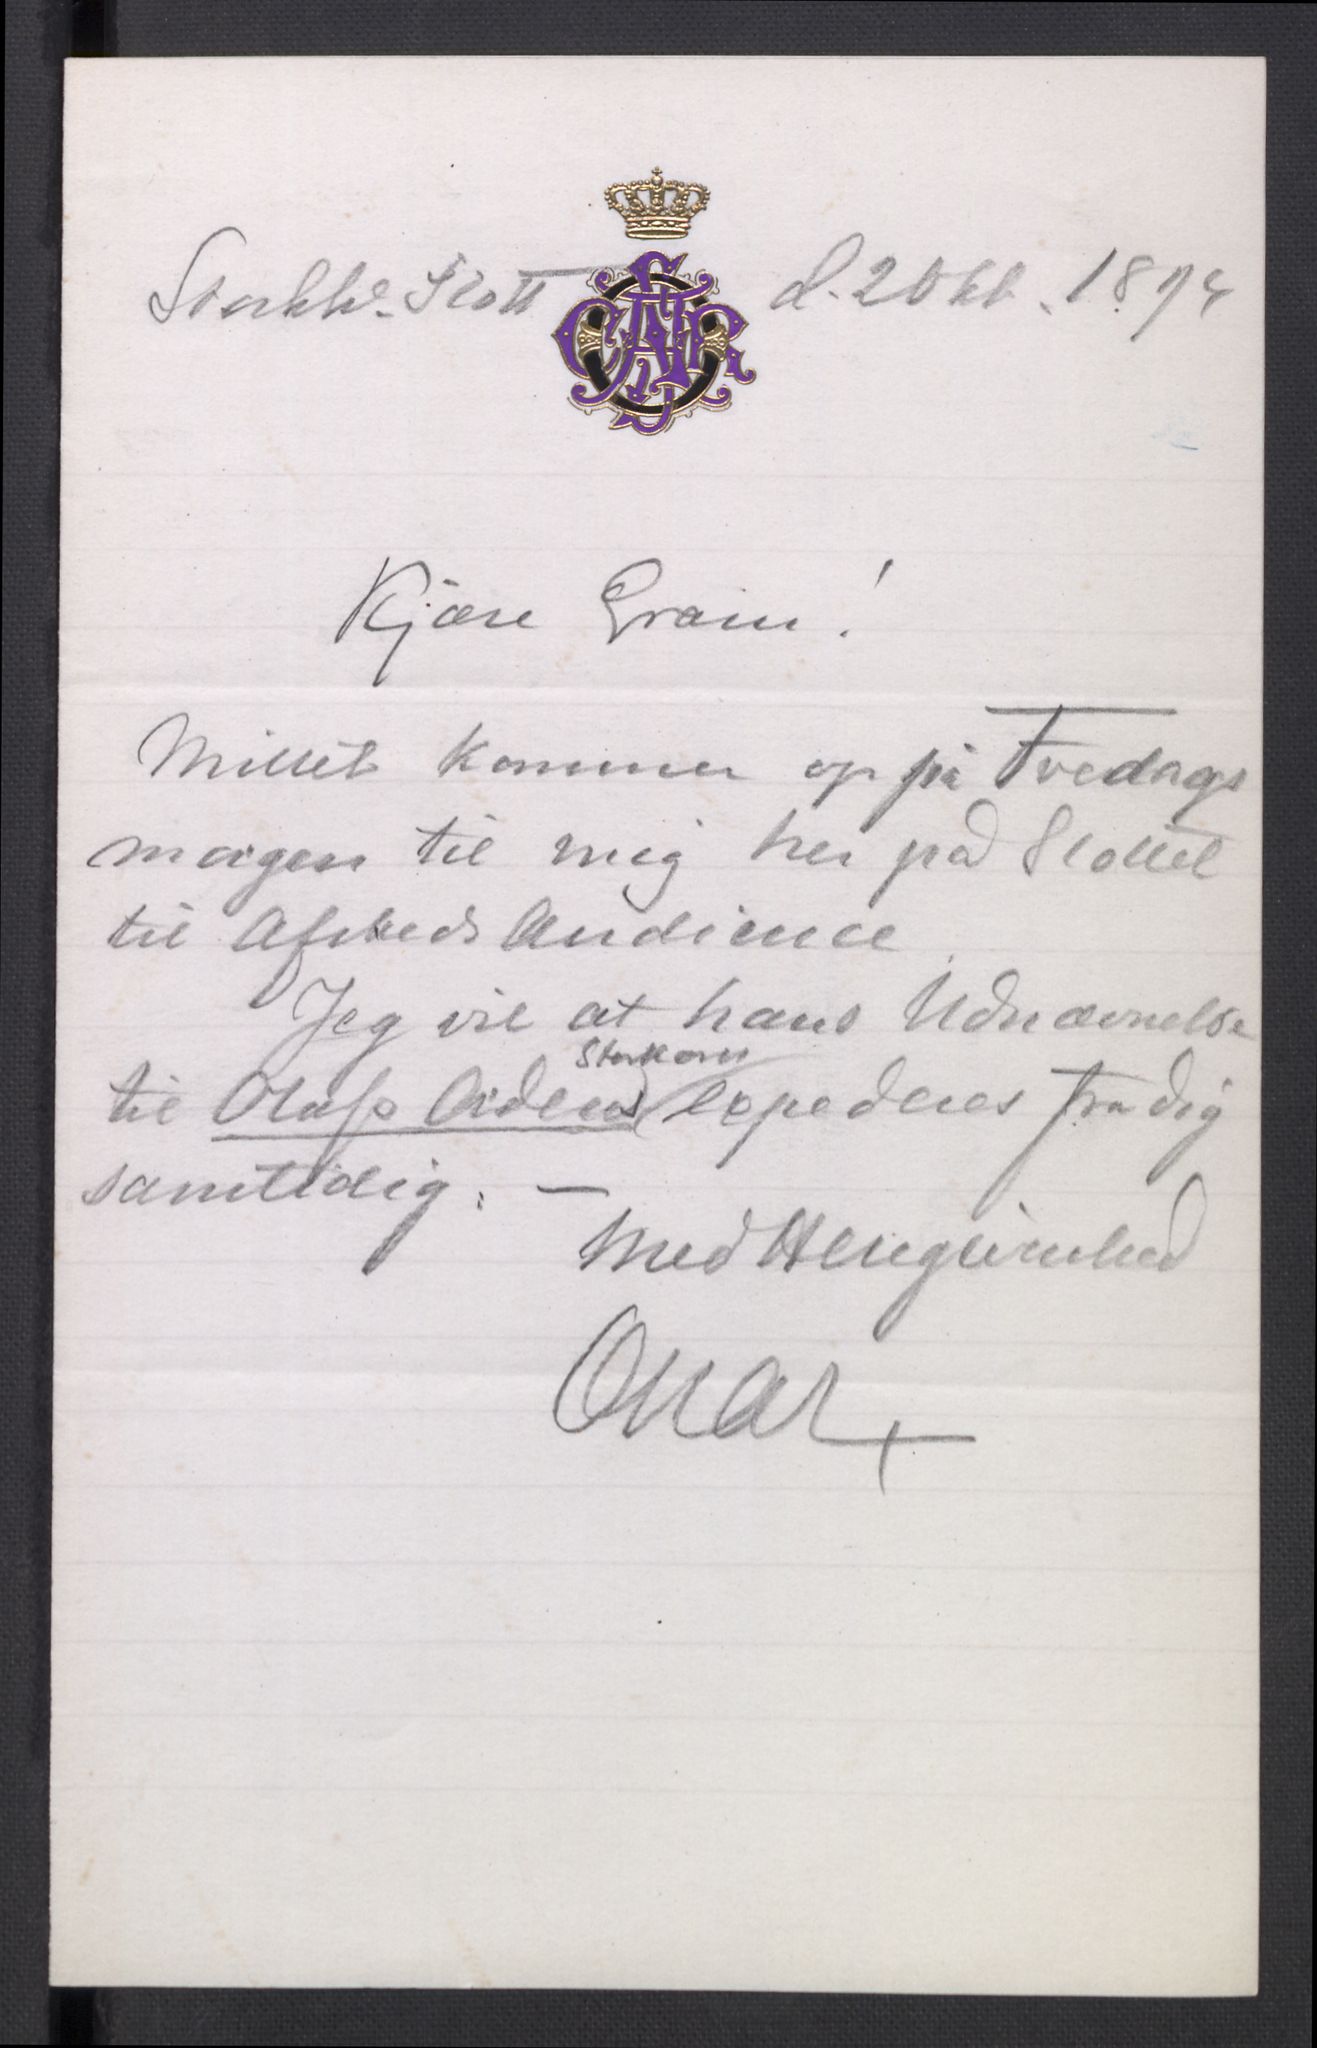 Stockh. Slott d. 2 Okt. 1894
Kjære Gram!
Millet kommer op på Fredags
morgen til mig her på Slottet
til Afskeds Audience.
Jeg vil at hans Udnævnelse
Storkors
til Olafs Ordens expederes fra dig
samtidig. —
Med Hengivenhed
Oscar